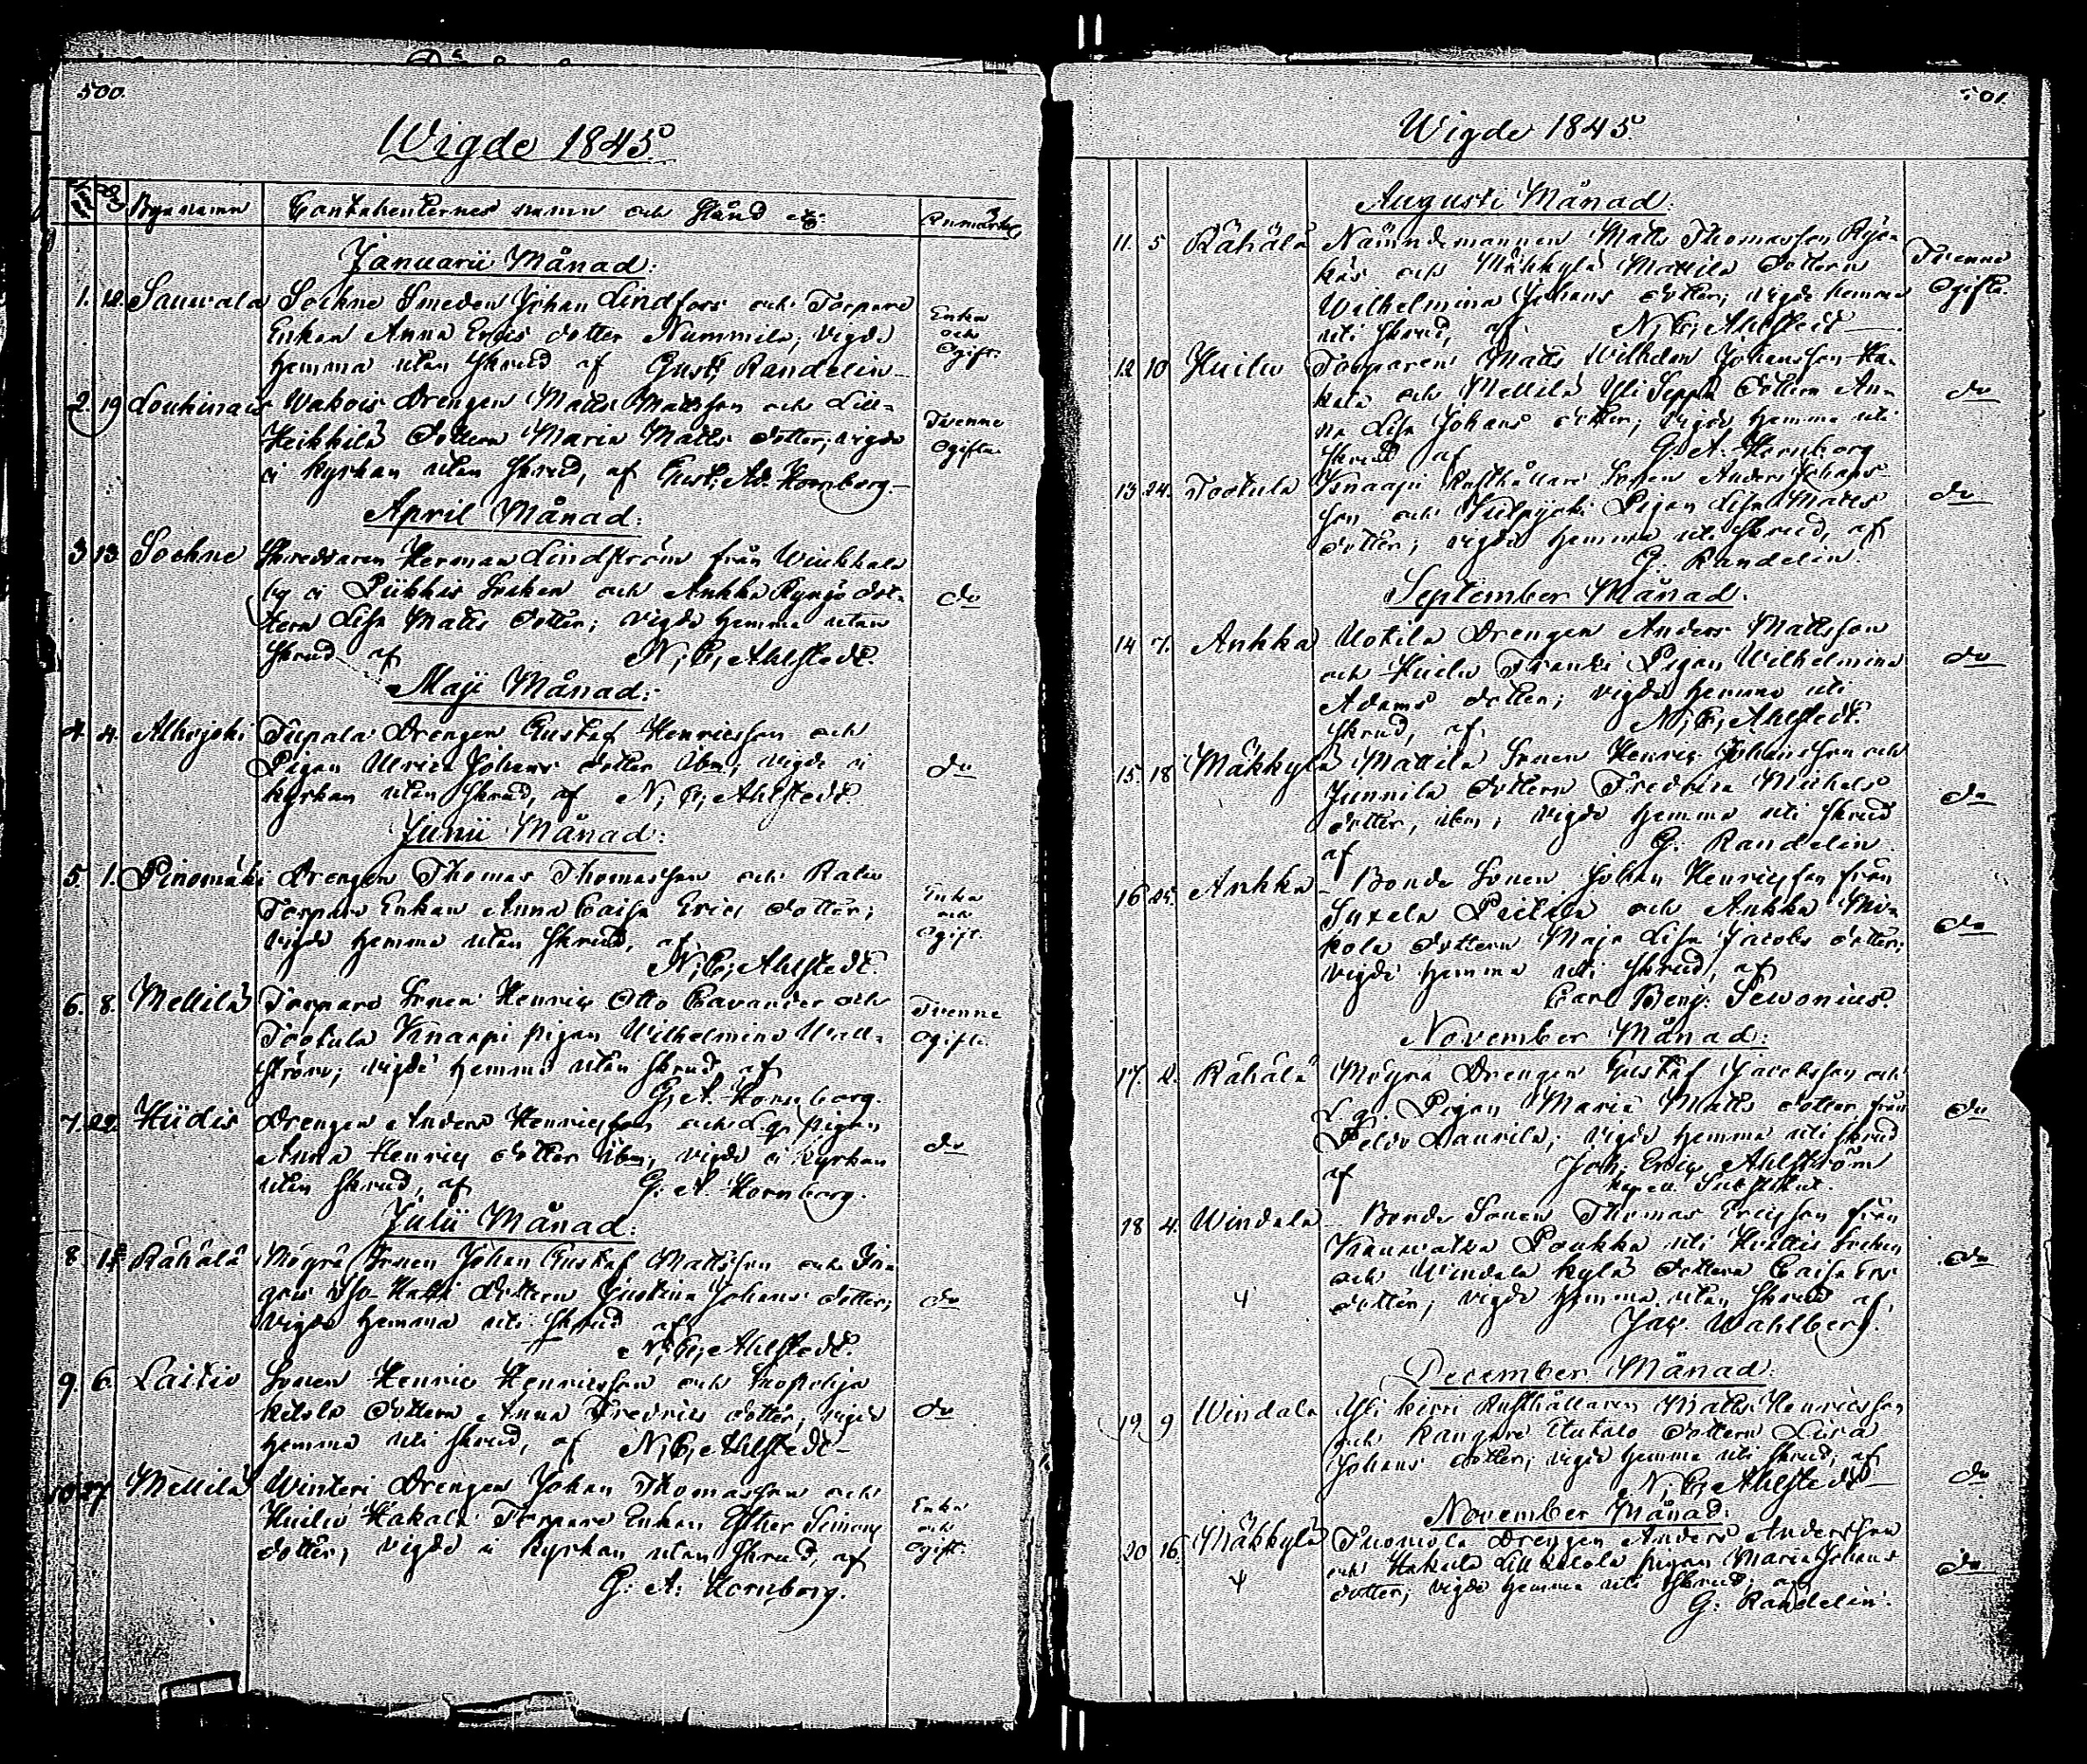 500.
Wigde 1845
Byanamn Contrahenternes namn och Stånd etc Anmärkn.
Januarii Månad:
1. 12. Sauwala Sochne Smeden Johan Lindfors och Torpare Enka
Enkan Anna Erics dotter Nummila, vigde och
hemma utan skrud af Gust. Randelin Ogift.
2. 19 Louhinais Wakois Drengen Matts Mattsson och Lill= Tvenne
Heikkilä Dottern Maria Matts dotter; vigde Ogifta
i kyrkan utan skrud, af Gust. Ad. Hornborg.
April Månad:
3 13. Sochne Skreddaren Herman Lindström från
by i Piikkis Socken och Ankka dot= do
tern Lisa Matts dotter; vigde hemma utan
skrud af N. C. Ahlstedt.
Maji Månad:
4. 4. Alhojoki Tupala Drengen Gustaf Henricsson och
Pigan Ulrica Johans dotter ibm; vigde i do
kyrkan utan skrud, af N. C. Ahlstedt.
Junii Månad:
5. 1. Pinomäki Drengen Thomas Thomasson och Enka
Torpare Enkan Anna Caisa Erics dotter; och
vigde hemma utan skrud, af Ogift.
N. C. Ahlstedt.
6. 8. Mellilä Torpare Sonen Henric Otto Cavander och Tvenne
Tootula Knaapi pigan Wilhelmina Wall= Ogifta
ström; vigde hemma utan skrud af
G. A. Hornborg.
7. 22. Hiidis Drengen Anders Henricsson och pigan
Anna Henrics dotter ibm, vigde i kyrkan do
utan skrud, af G. A. Hornborg.
Julii Månad:
8 Rähälä Mögrä Sonen Johan Gustaf Mattsson och
Dottern Justina Johans dotter; do
vigde hemma uti skrud af
N. C. Ahlstedt.
9. 6. Laitio Sonen Henric Henricsson och
dottern Anna Fredrics dotter, vigde do
hemma uti skrud, af N. C. Ahlstedt
10. 27 Mellilä Winteri Drengen Johan Thomasson och Enka
Huilu Hakala Torpare Enkan Esther Simons och
dotter, vigde i Kyrkan utan skrud, af Ogift.
G. A. Hornborg.
501.
Wigde 1845
Augusti Månad:
11. 5 Rähälä Nämndemannen Matts Thomasson Tvenne
och Mäkkylä Mattila dottern Ogifta.
Wilhelmina Johans dotter; vigde hemma
uti skrud, af N. C. Ahlstedt
12 10 Huilu Torparen Matts Wilhelm Johansson Ha=
kala och Mellilä Yli Seppä dottern An= do
na Lisa Johans dotter; vigde hemma uti
skrud af G. A. Hornborg
13 24. Tootula Knaapi Rusthållare Sonen Anders Johans= do
son och Pigan Lisa Matts
dotter; vigde hemma uti skrud, af
G. Randelin.
September Månad:
14 7. Ankka Uotila Drengen Anders Mattsson
och Huilu Pigan Wilhelmina do
Adams dotter; vigde hemma uti
skrud, af N. C. Ahlstedt.
15. 18 Mäkkylä Mattila Sonen Henric Johansson och
Junnila dottern Fredrica Michels do
dotter, ibm; vigde hemma uti skrud
af G. Randelin
16 25. Ankka Bonde Sonen Johan Henricsson från
och Ankka do
kola dottern Maja Lisa Jacobs dotter;
vigde hemma uti skrud, af
Carl Benj. Sewonius.
November Månad:
17. 2. Rähälä Mögrä Drengen Gustaf Jacobsson och
Pigan Maria Matts dotter från do
Peldo Laurila; vigde hemma uti skrud
af Joh. Eric Ahlström
18 4. Windala Bonde Sonen Thomas Ericsson från
Loukka uti Socken
och Windala kylä dottern Caisa do
dotter; vigde hemma utan skrud af,
Jac. Wahlberg.
December Månad:
19 9 Windala Yli Rusthållaren Matts Henricsson
och dottern Lisa
Johans dotter; vigde hemma uti skrud, af
N. C. Ahlstedt do
November Månad:
20 16. Mäkkylä Tuomola Drengen Anders Andersson
och Hakula pigan Maria Johans do
dotter; vigde hemma uti skrud, af
G. Randelin.